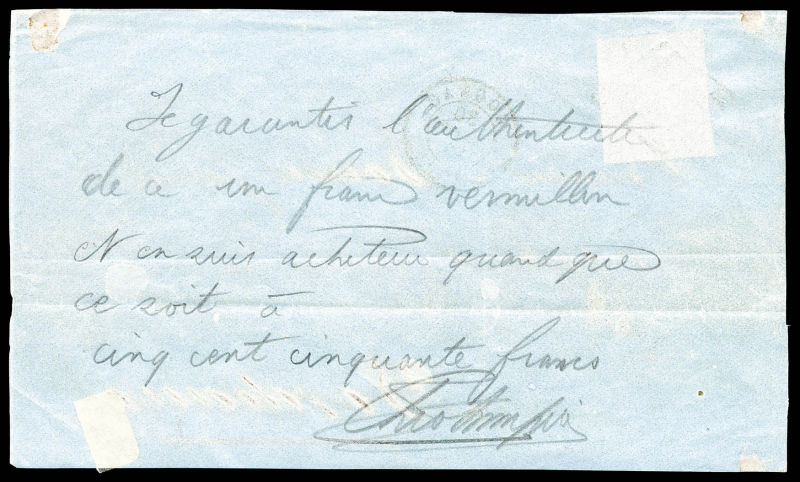 Je garantis l'authenticite
de ce un franc vermillon
et en suis acheteur quand que
ce soit à
cinq cent cinquante francs